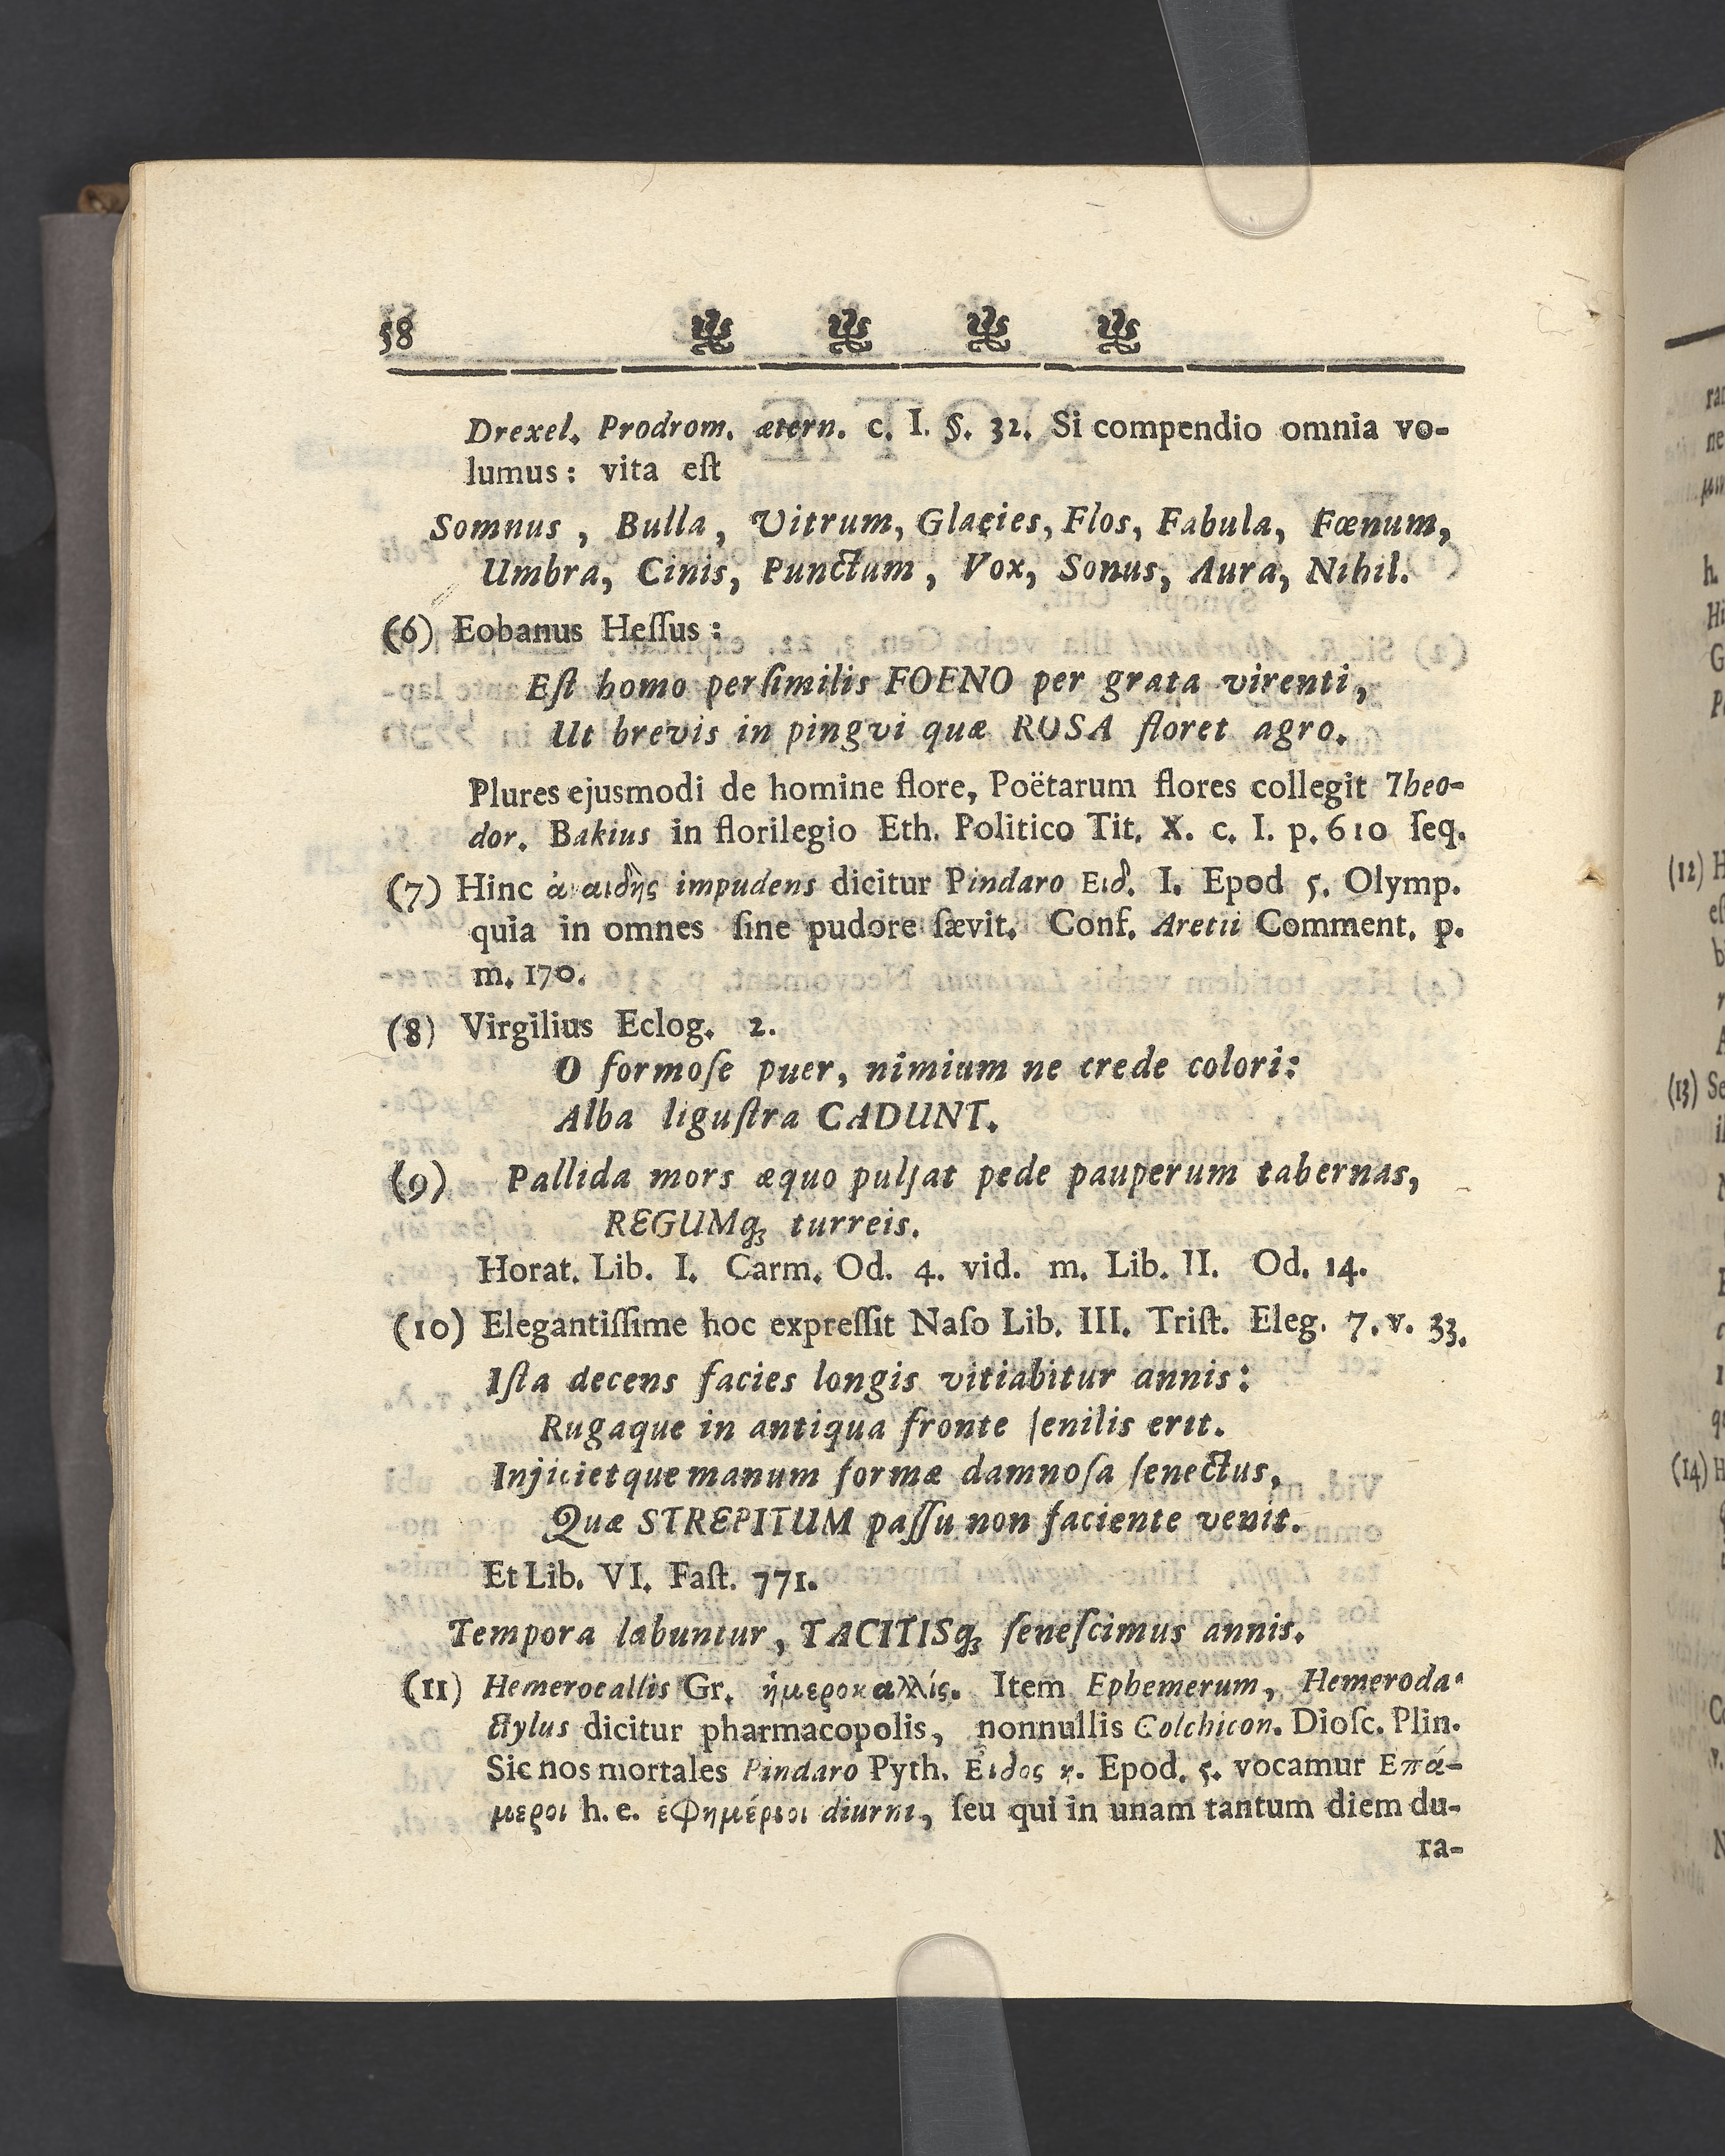 58
Drexel. Prodrom. ætern. c. I. §. 32. Si compendio omnia vo-
lumus: vita eſt
Somnus, Bulla, Vitrum, Glacies, Flos, Fabula, Fœnum,
Umbra, Cinis, Punctum, Vox, Sonus, Aura, Nihil.
(6) Eobanus Heſſus:
Eſt homo perſimilis FOENO per grata virenti,
Ut brevis in pingvi quæ ROSA floret agro.
Plures ejusmodi de homine flore, Poëtarum flores collegit Theo-
dor. Bakius in florilegio Eth. Politico Tit. X. c. I. p. 610 ſeq.
(7) Hinc ἀναιδὴς impudens dicitur Pindaro Ειδ. I. Epod 5. Olymp.
quia in omnes ſine pudore ſævit. Conf. Aretii Comment. p.
m. 170.
(8) Virgilius Eclog. 2.
O formoſe puer, nimium ne crede colori:
Alba liguſtra CADUNT.
(9) Pallida mors æquo pulſat pede pauperum tabernas,
REGUMq; turreis.
Horat. Lib. I. Carm. Od. 4. vid. m. Lib. II. Od. 14.
(10) Elegantiſſime hoc expreſſit Naſo Lib. III. Triſt. Eleg. 7. v. 33.
Iſta decens facies longis vitiabitur annis:
Rugaque in antiqua fronte ſenilis erit.
Injicietque manum formæ damnoſa ſenectus,
Quæ STREPITUM paſſu non faciente venit.
Et Lib. VI. Faſt. 771.
Tempora labuntur, TACITISq; ſeneſcimus annis.
(11) Hemerocallis Gr. ἡμεροκαλλίς. Item Ephemerum, Hemeroda-
ctylus dicitur pharmacopolis, nonnullis Colchicon. Dioſc. Plin.
Sic nos mortales Pindaro Pyth. Εἶδος η. Epod. 5. vocamur Επά-
μεροι h. e. ἐφημέριοι diurni, ſeu qui in unam tantum diem du-
ra-